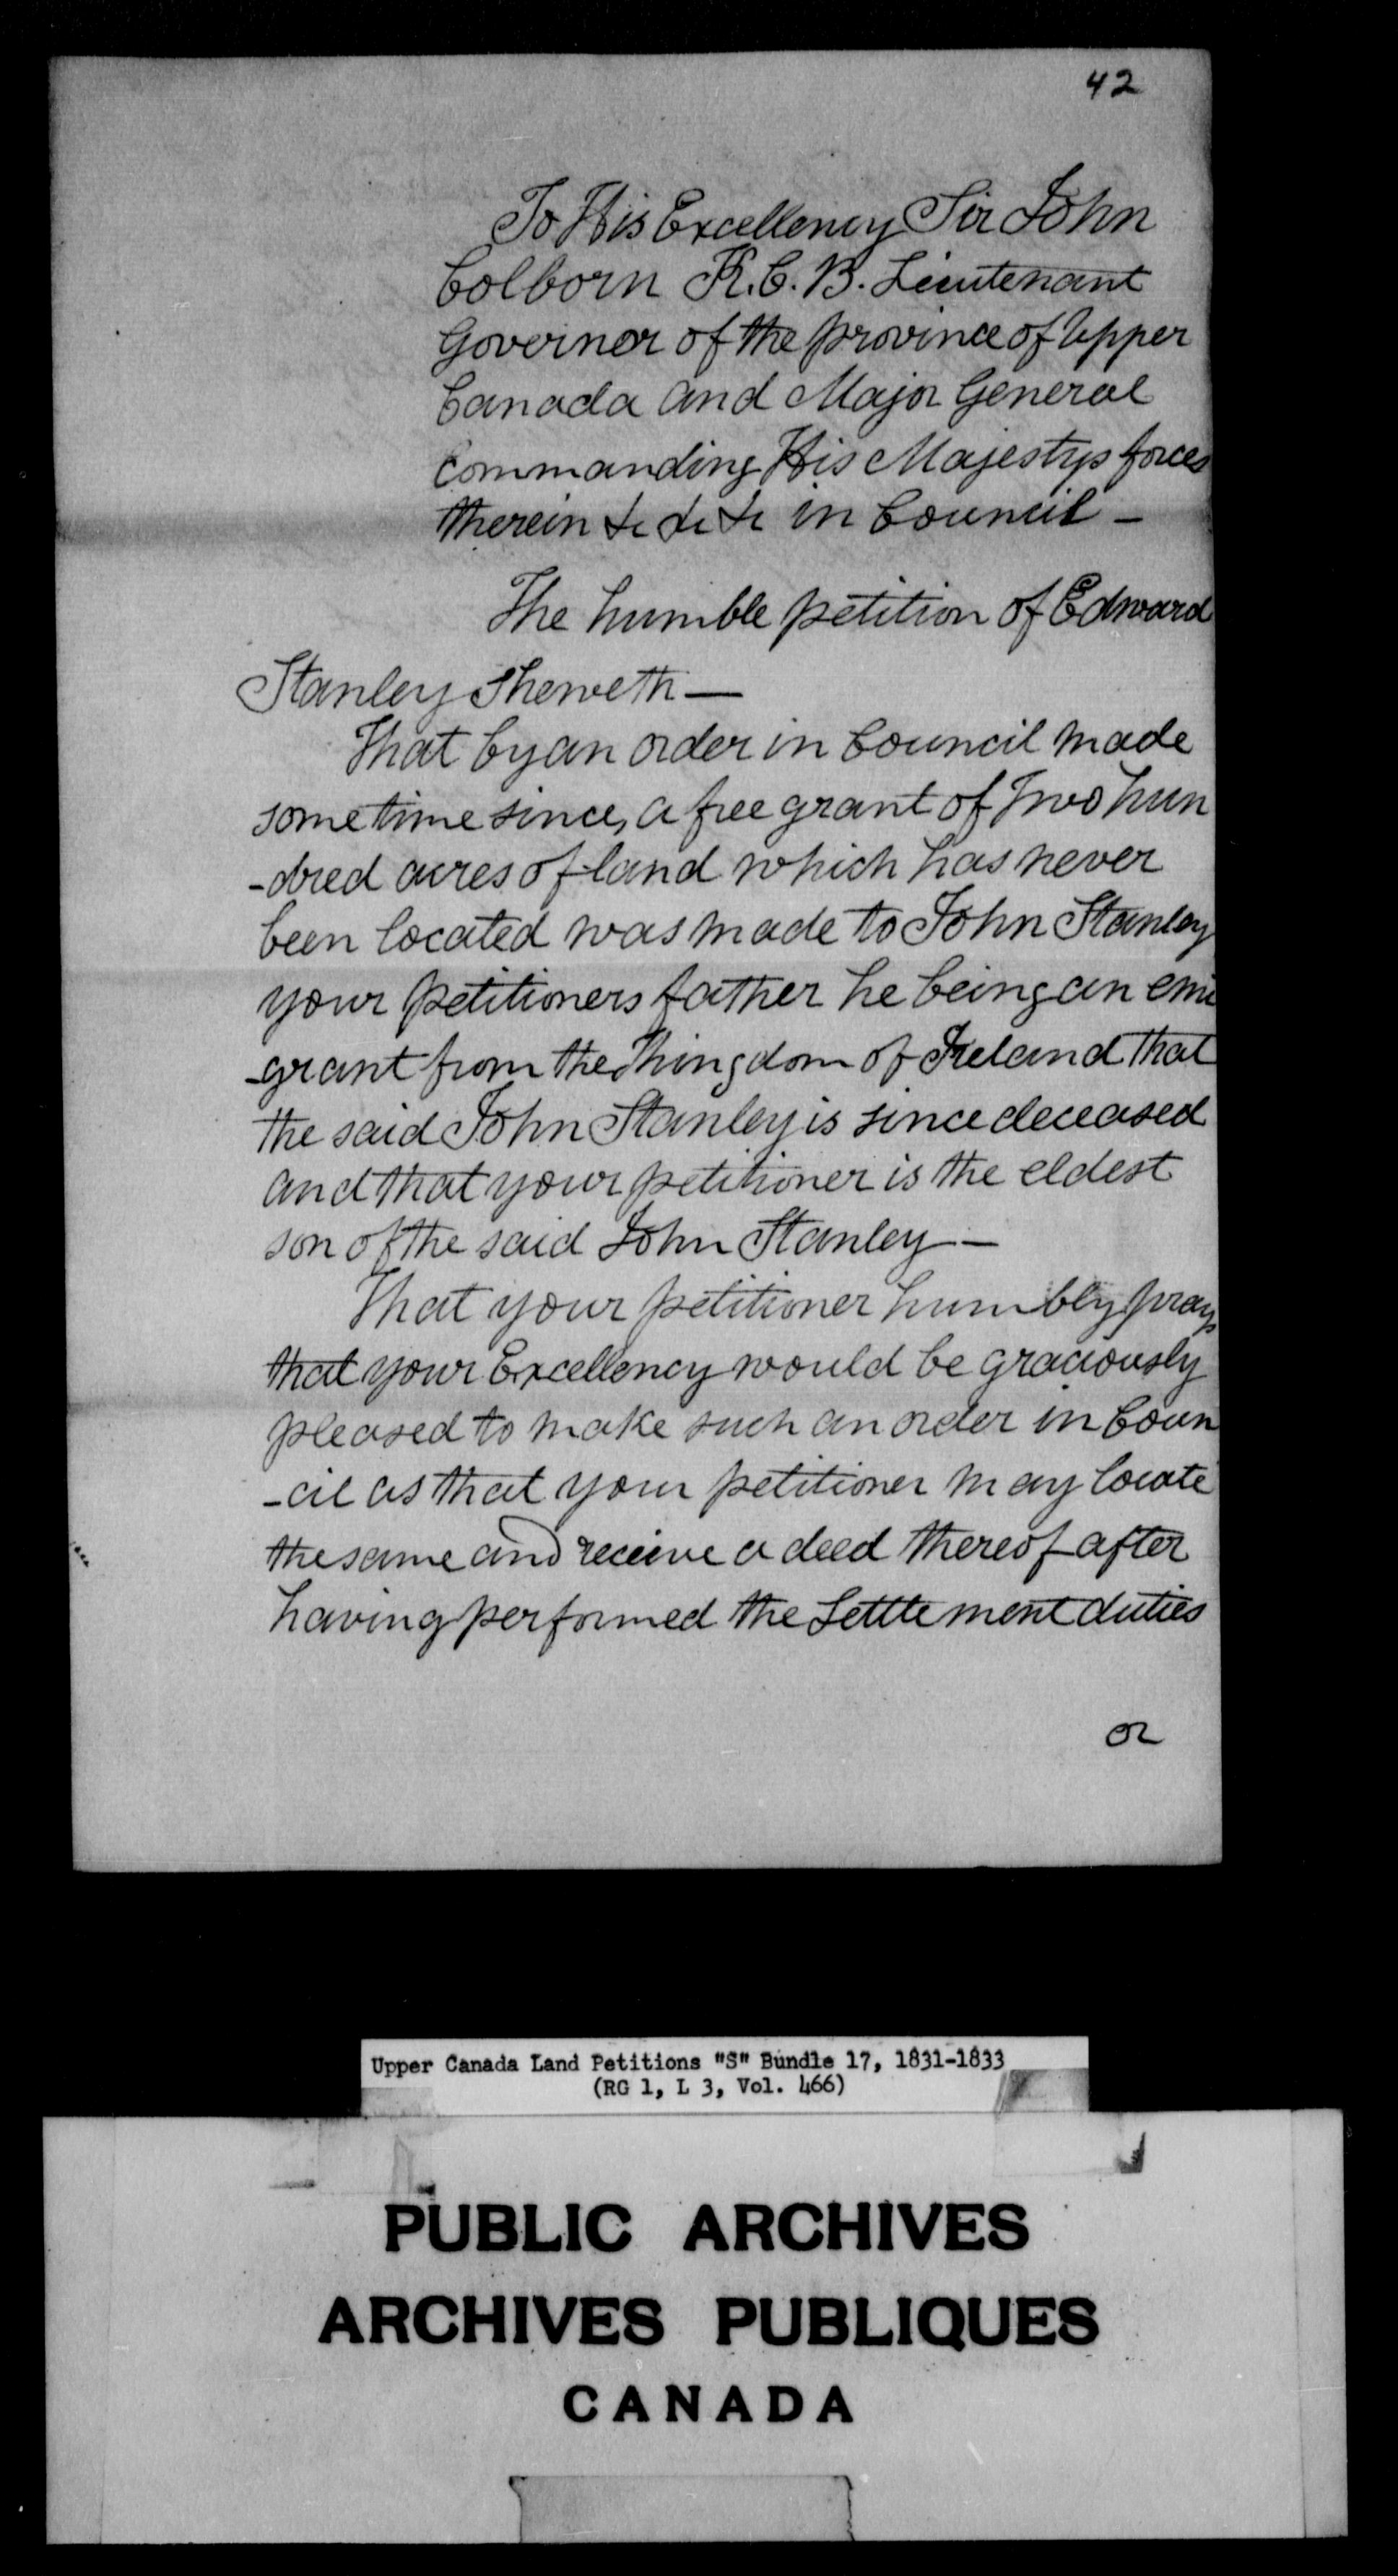 42
To His Excellency Sir John
Colborn K.C.B. Lieutenant
Governor of the province of Upper
Canada and Major General
Commanding His Majestys forces
therein &c &c &c in Council -
The humble petition of Edward
Stanley Sheweth —
That by an order in Council made
some time since, a free grant of Two hun
-dred acres of land which has never
been located was made to John Stanley
your petitioners father he being an emi
-grant from the Kingdom of Ireland that
the said John Stanley is since deceased
and that your petitioner is the eldest
son of the said John Stanley —
That your petitioner humbly prays
that your Excellency would be graciously
pleased to make such an order in Coun
-cil as that your petitioner may locate
the same and receive a deed thereof after
having performed the Settlement duties
or
Upper Canada Land Petitions "S" Bundle 17, 1831-1833
(RG 1, L 3, Vol. 466)
PUBLIC ARCHIVES
ARCHIVES PUBLIQUES
CANADA